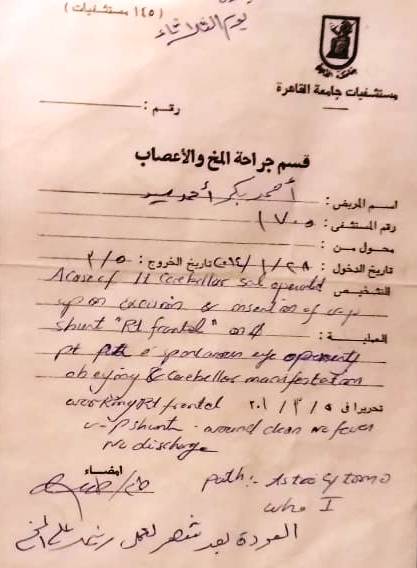 ( ١٤٥ مستشفيات )
يوم الثلاثاء
جامعة القاهرة
مستشفيات جامعة القاهرة
رقم :
قسم جراحة المخ والأعصاب
اسم المريض : أحمد بكر أحمد سيد
رقم المستشفى : ١٧٠٠٥
محول من :
تاريخ الدخول : ٢٨ / ١ / تاريخ الخروج : ٥ / ٣
التشخيص A case of Cerebellar sol operated
upon excision & insertion of v-p
العملية : shunt "Rt frontal" on
pt spontaneous eye opening
obeying & cerebellar manifestation
تحريرا في ٥ / ٣ / ٢٠١ working Rt frontal
v-p shunt - wound clean no fever
No discharge
امضاء
path :- Astrocytoma
who I
العودة بعد شهر لعمل رنين على المخ